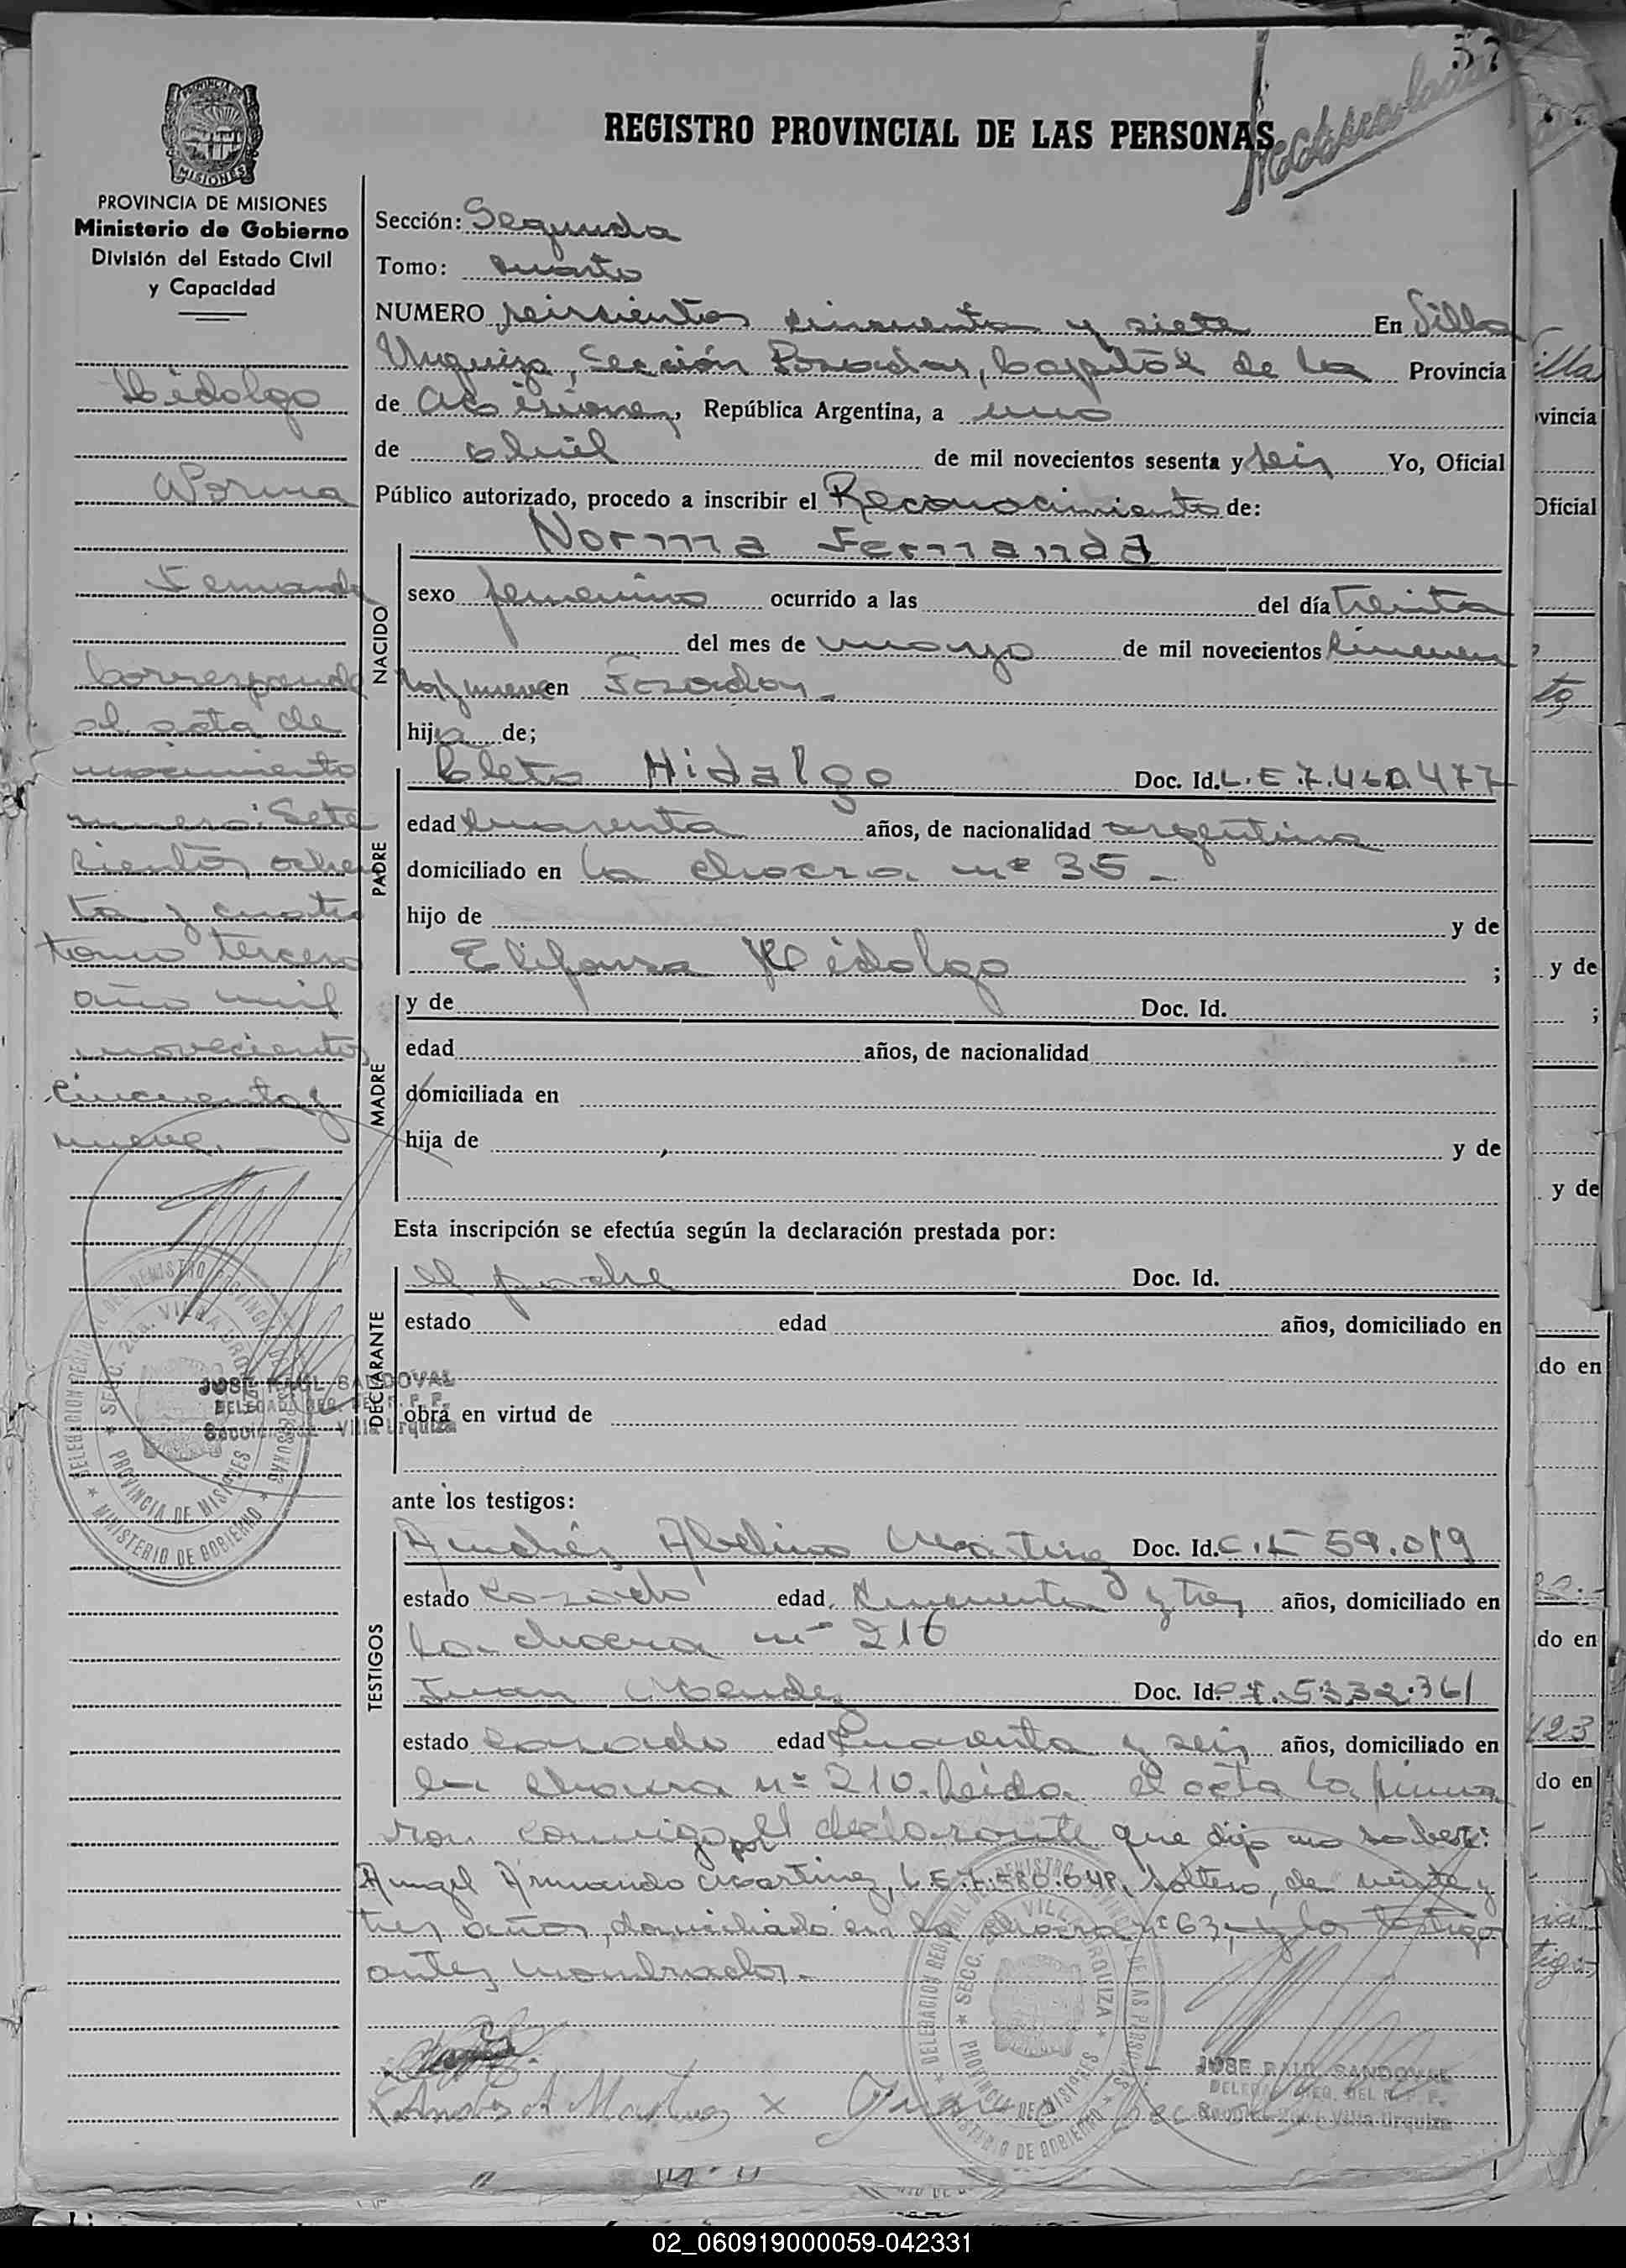 57
REGISTRO PROVINCIAL DE LAS PERSONAS
MISIONES
PROVINCIA DE MISIONES
Ministerio de Gobierno
División del Estado Civil
y Capacidad
Hidalgo
Norma
Fernanda
Corresponde
al acta de
nacimiento
numero: Sete
cientos ochen
ta y cuatro
tomo tercero
año mil
novecientos
cincuenta y
nueve.
Sección: Segunda
Tomo: cuarto
NUMERO seiscientos cincuenta y siete En Villa
Urquiza, Sección Posadas, Capital de la Provincia
de Misiones, República Argentina, a uno
de abril de mil novecientos sesenta y seis Yo, Oficial
Público autorizado, procedo a inscribir el Reconocimiento de:
Norma Fernanda
NACIDO
sexo femenino ocurrido a las del día treinta
del mes de marzo de mil novecientos cincuen
ta y nueve en Posadas.
hija de;
PADRE
Cleto Hidalgo Doc. Id. L.E.7.460.477
edad cuarenta años, de nacionalidad argentina
domiciliado en la chacra nº 35.
hijo de y de
Elifonsa Hidalgo ;
MADRE
y de Doc. Id.
edad años, de nacionalidad
domiciliada en
hija de y de
Esta inscripción se efectúa según la declaración prestada por:
DECLARANTE
el padre Doc. Id.
estado edad años, domiciliado en
obra en virtud de
JOSE RAUL SANDOVAL
Villa Urquiza
ante los testigos:
TESTIGOS
Andrés Abelino Martinez Doc. Id. C.I. 59.019
estado casado edad cincuenta y tres años, domiciliado en
la chacra nº 216
Juan Mendez Doc. Id. 5332.361
estado casado edad cuarenta y seis años, domiciliado en
la chacra nº 210. Leida el acta la firma
ron conmigo por el declarante que dijo no saber:
Angel Armando Martinez, L.E.7.580.648, soltero, de veinte y
tres años, domiciliado en la chacra nº 63, y los testigos
antes nombrados.
JOSE RAUL SANDOVAL
Villa Urquiza
Andrés A Martinez x Juan
02_060919000059-042331